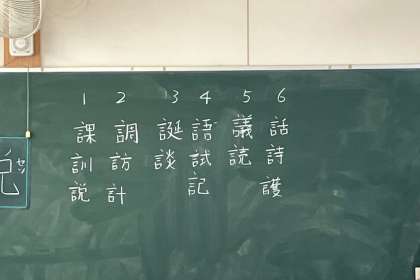 1 2 3 4 5 6
課 調 誕 語 議 話
訓 訪 談 試 読 詩
説 計 記 護